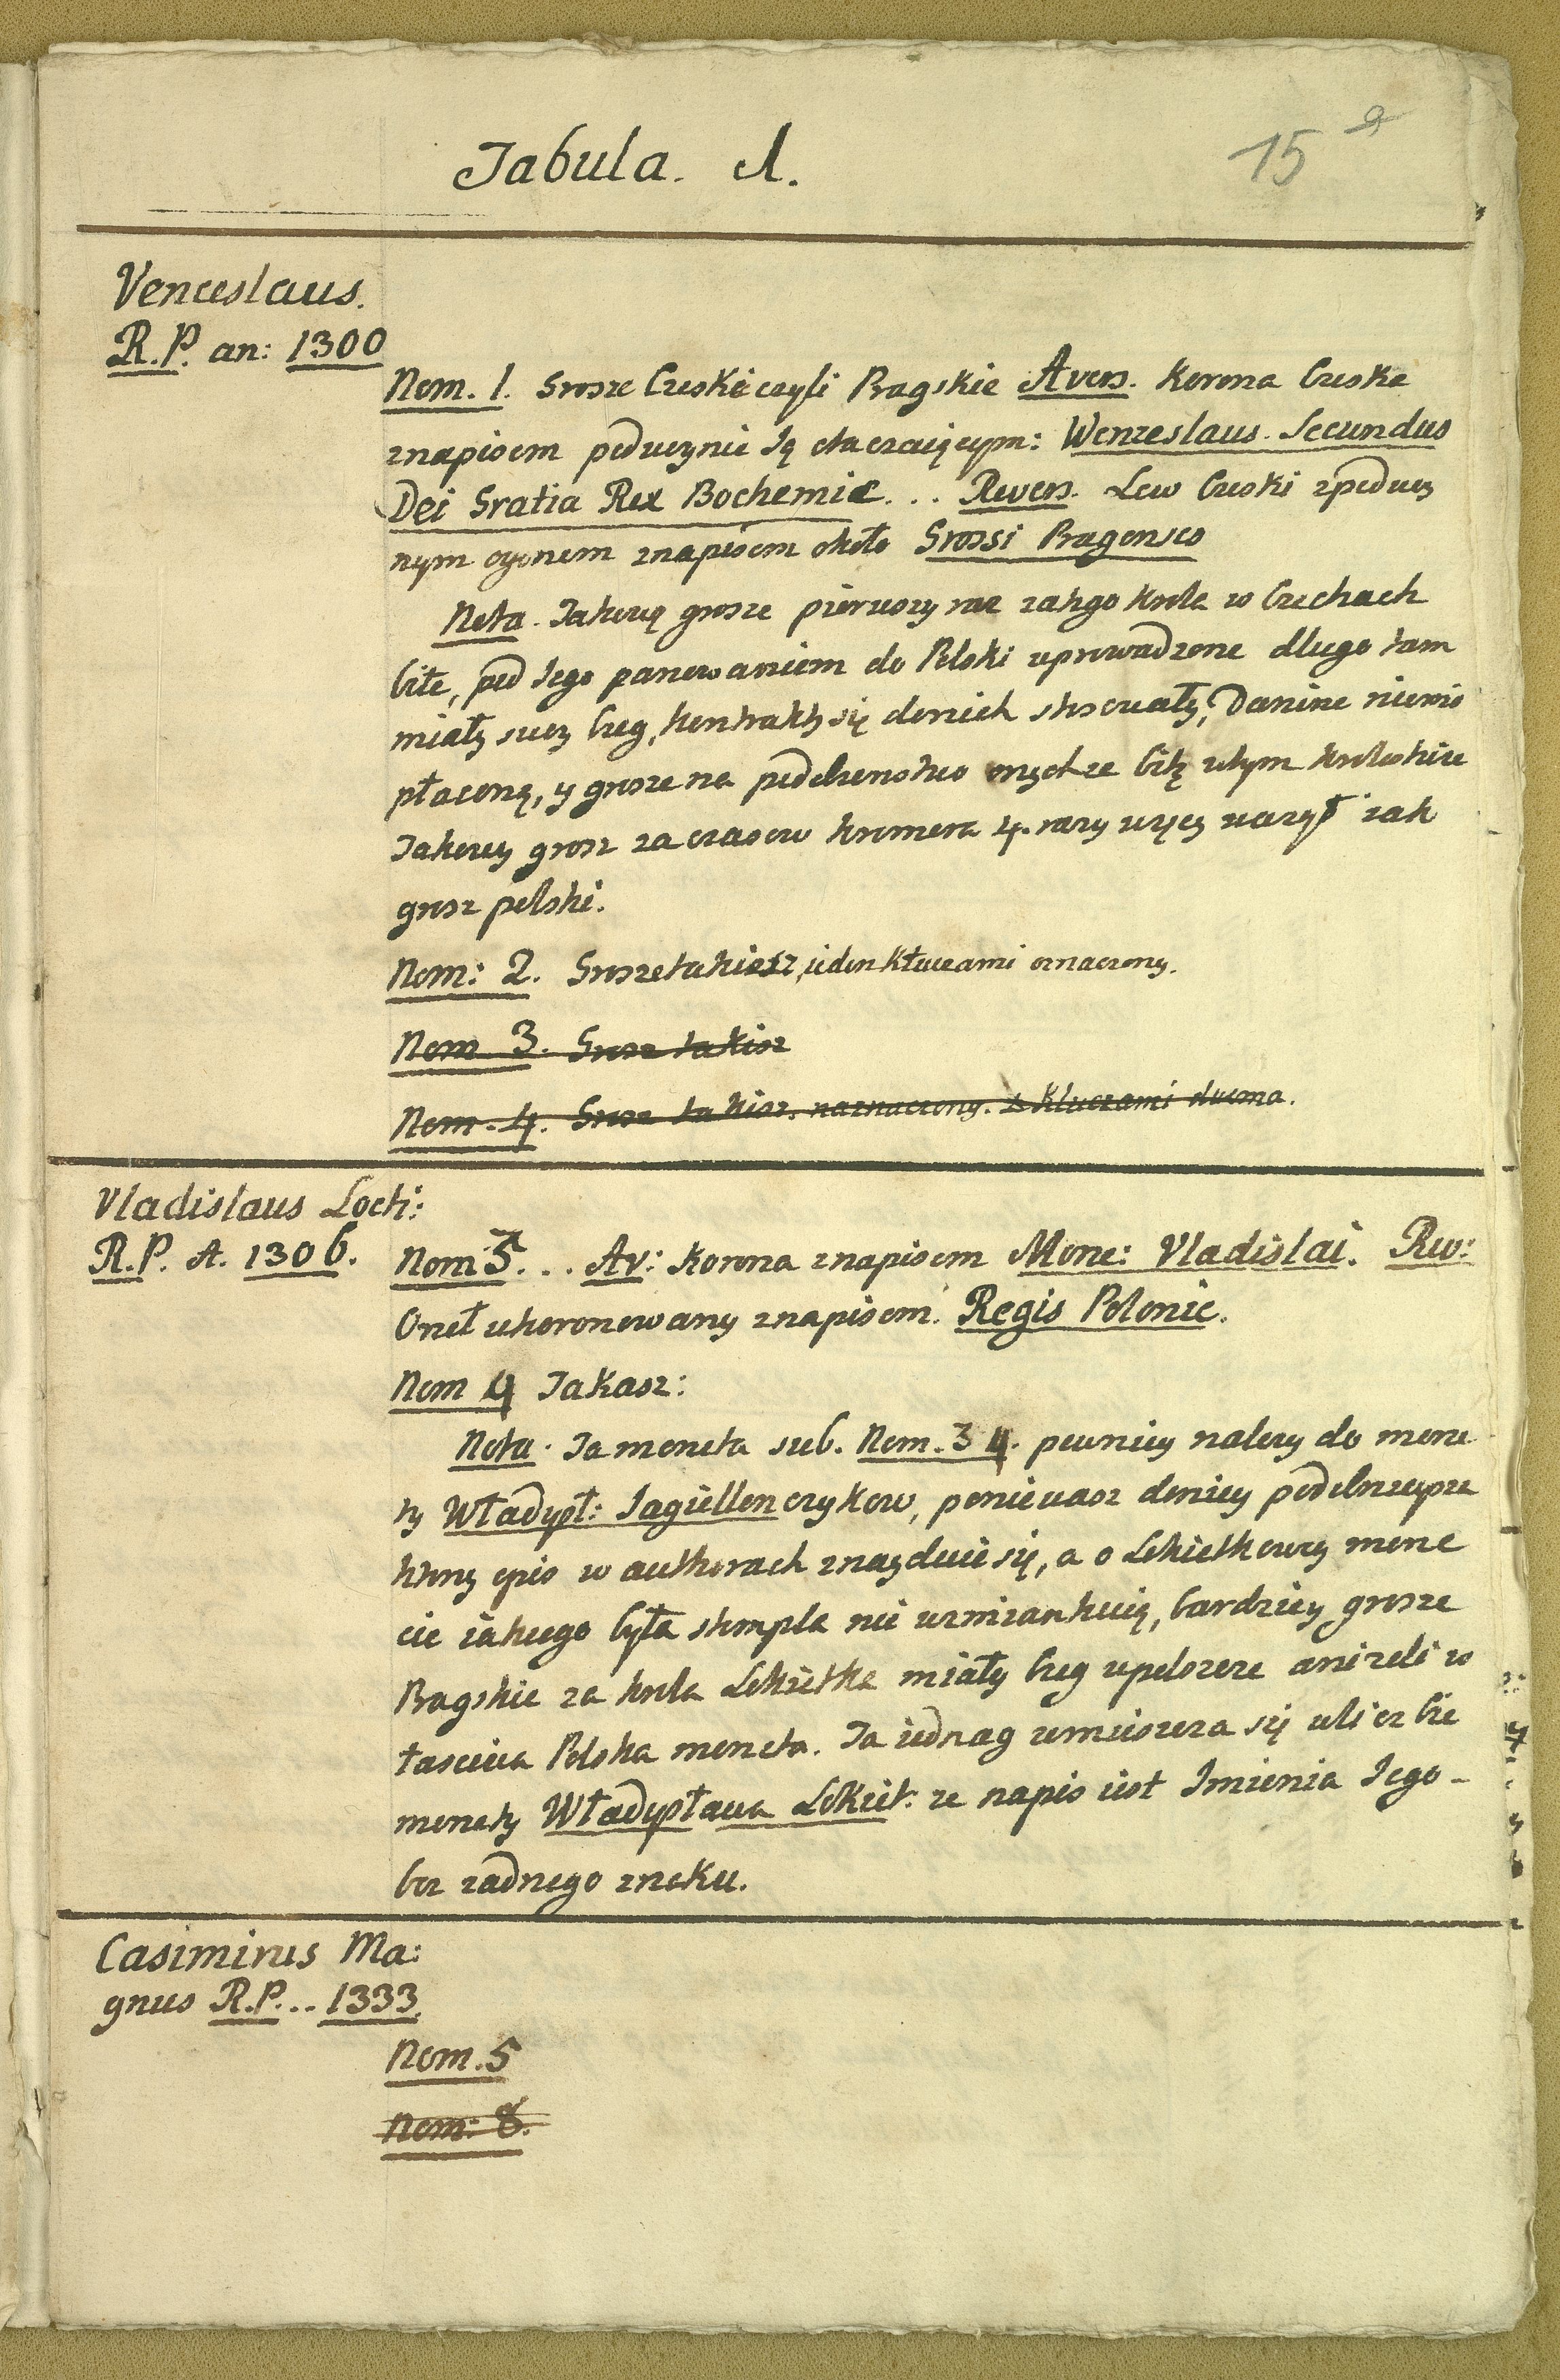 Tabula. 1.
15 a
Venceslaus.
R.P. an: 1300
Nom. 1. Grosze Czeskie czyli Pragskie Avers. Korona Czeska
znapisem podwoynie Ją otaczaiącym: Wenzeslaus. Secundus
Dei Gratia Rex Bochemie... Revers. Lew Czeski zpodwoy
nym ogonem znapisem około Grossi Pragenses
Nota. Takowe grosze pierwszy raz zatego Krola w Czechach
bite, pod Jego panowaniem do Polski wprowadzone długo tam
miały swoy bieg, Kontrakty się donich stosowały, Danine niemi
płacono, y grosze na podobienstwo onychże bito wtym Krolestwie
Takowy grosz za czasow Kromera 4. razy więcy ważył iak
grosz polski.
Nom: 2. Grosz takisz, ieden Kluczami oznaczony.
Nom 3. Grosz takisz
Nom. 4. Grosz takisz. naznaczony. z Kluczami dwoma.
Vladislaus Locti:
R.P. A. 1306.
Nom 3... Av: Korona znapisem Mone: Vladislai. Rev:
Orzeł ukoronowany znapisem. Regis Polonie.
Nom 4 Takasz:
Nota. Ta moneta sub. Nom. 3 4. pewniey nalezy do mone
ty Władysł: Jagiellonczykow, poniewasz doniey podobnieysze
ktory opis w authorach znayduie się, a o Lokietkowey mone
cie iakiego była stempla nie wzmiankuią, bardziey grosze
Pragskie za krola Lokietka miały bieg wpolszcze anizeli w
łasciwa Polska moneta. Ta iednag umieszcza się wliczbie
monety Władysława Lokiet: ze napis iest Imienia Jego -
bez zadnego znaku.
Casimirus Ma:
gnus R.P... 1333.
Nom. 5
Nom: 8.